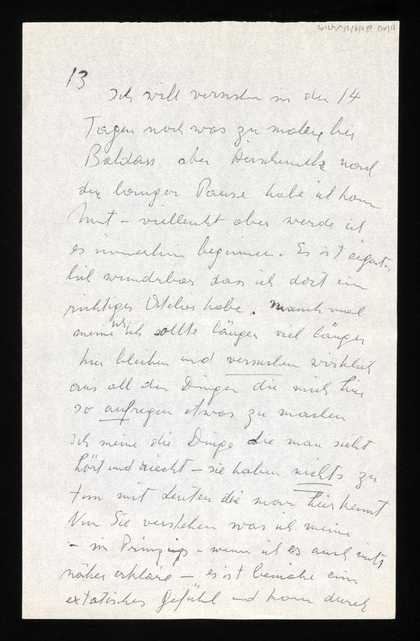 13
Ich will versuchen in den 14
Tagen noch was zu malen bei
Baldass aber nach
der langen Pause habe ich kaum
Mut – vielleicht aber werde ich
es immerhin beginnen. Es ist eigent-
lich wunderbar dass ich dort ein
richtiges Atelier habe. Manchmal
meine ich ich sollte länger viel länger
hier bleiben und versuchen wirklich
aus all den Dingen die mich hier
so aufregen etwas zu machen
Ich meine die Dinge die man sieht
hört und riecht – sie haben nichts zu
tun mit Leuten die man hier kennt
Nun Sie verstehen was ich meine
– im Prinzip – wenn ich es auch nicht
näher erkläre – es ist beinahe ein
extatisches Gefühl und kann durch